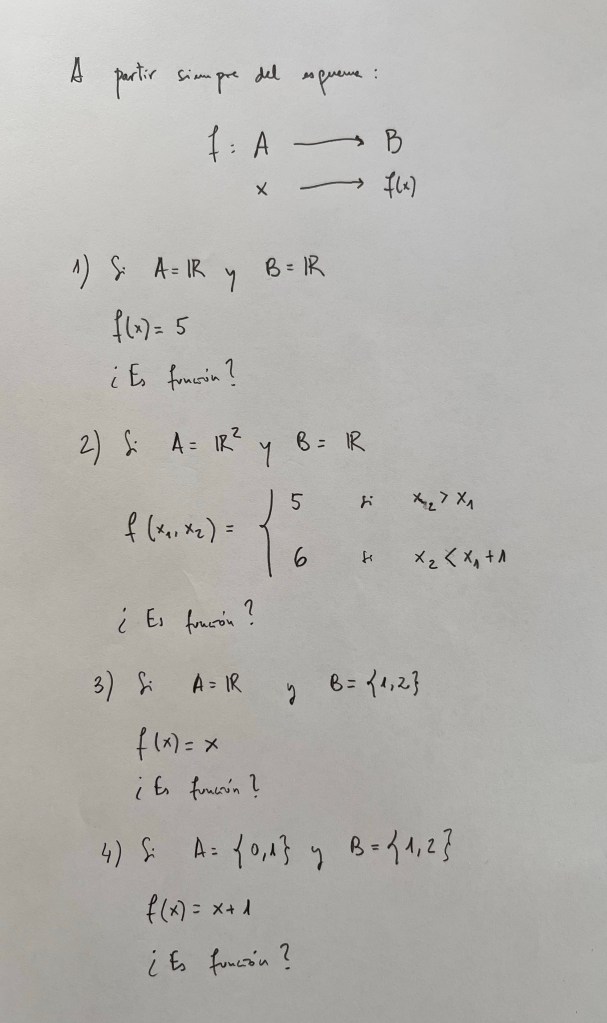 A partir siempre del esquema :
f : A ⟶ B
x ⟶ f(x)
1) Si A = ℝ y B = ℝ
f(x) = 5
¿ Es función ?
2) Si A = ℝ² y B = ℝ
f (x₁, x₂) = { 5 si x₂ > x₁
6 si x₂ < x₁ + 1
¿ Es función ?
3) Si A = ℝ y B = {1,2}
f(x) = x
¿ Es función ?
4) Si A = {0,1} y B = {1,2}
f(x) = x + 1
¿ Es función ?